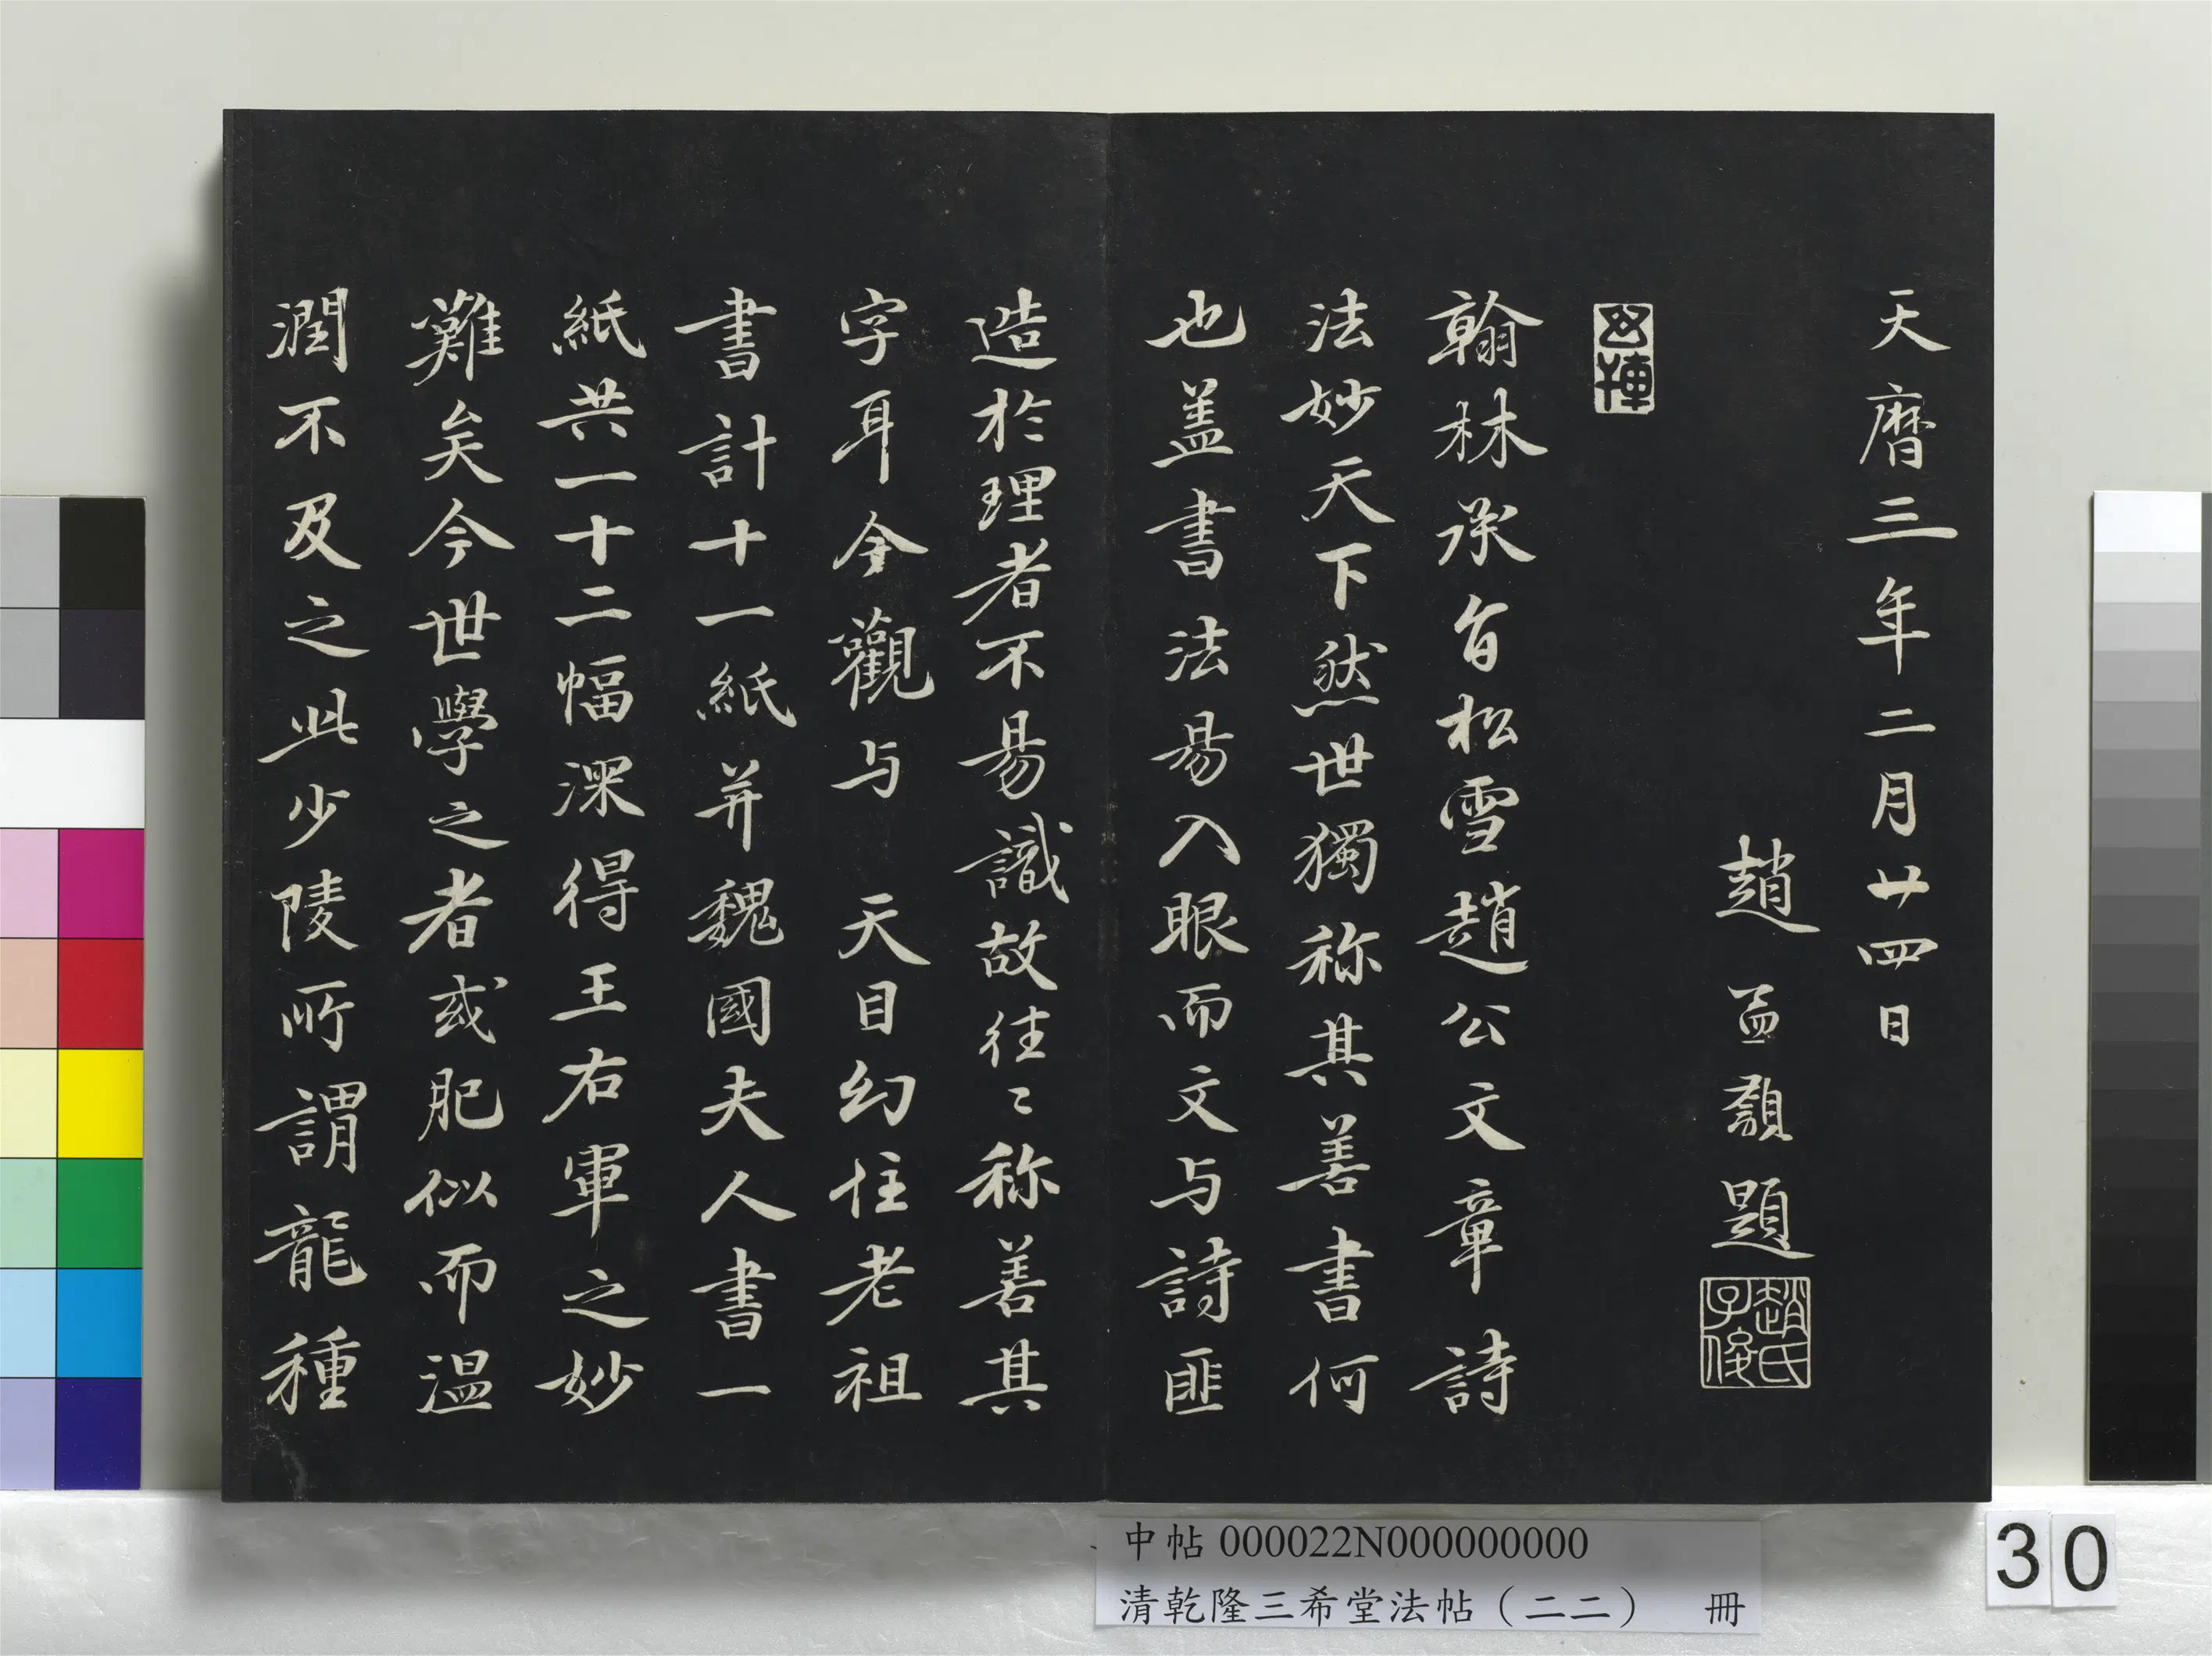 天曆三年二月廿四日
趙孟頫題
趙氏子俊
翰林承旨松雪趙公文章詩
法妙天下然世獨称其善書何
也盖書法易入眼而文与詩匪
造於理者不易識故往〻称善其
字耳今觀与 天目幻住老祖
書計十一紙并魏國夫人書一
紙共一十二幅深得王右軍之妙
難矣今世學之者或肥似而温
潤不及之此少陵所謂龍種
中帖 000022N000000000
清乾隆三希堂法帖（二二） 冊
30